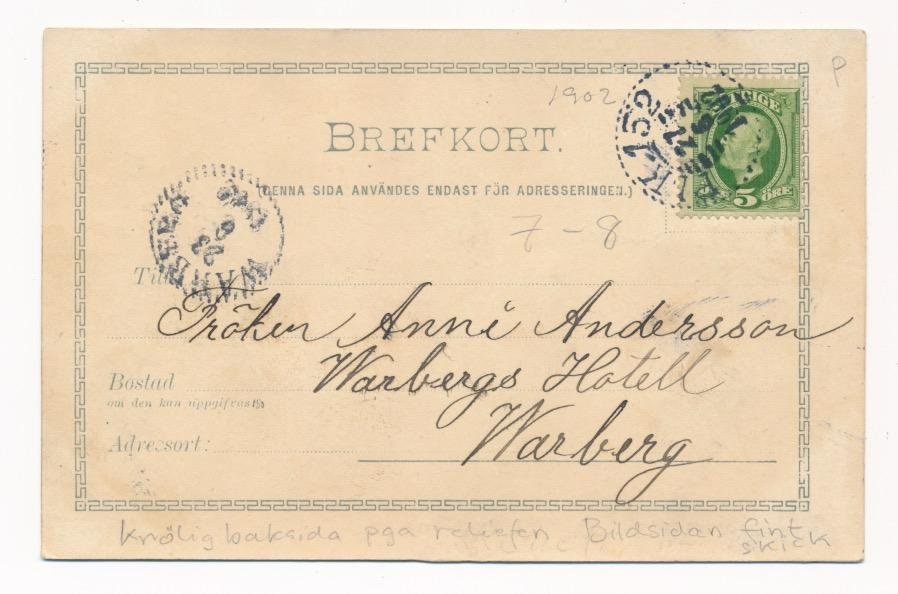 P
1902
BREFKORT.
(DENNA SIDA ANVÄNDES ENDAST FÖR ADRESSERINGEN.)
SVERIGE
5 ÖRE
PKXP
27 6 1902
WARBERG
23 6
7-8
Till
Fröken Anni Andersson
Bostad
Warbergs Hotell
om den kan uppgifvas
Adressort:
Warberg
Knölig baksida pga reliefen Bildsidan fint
skick